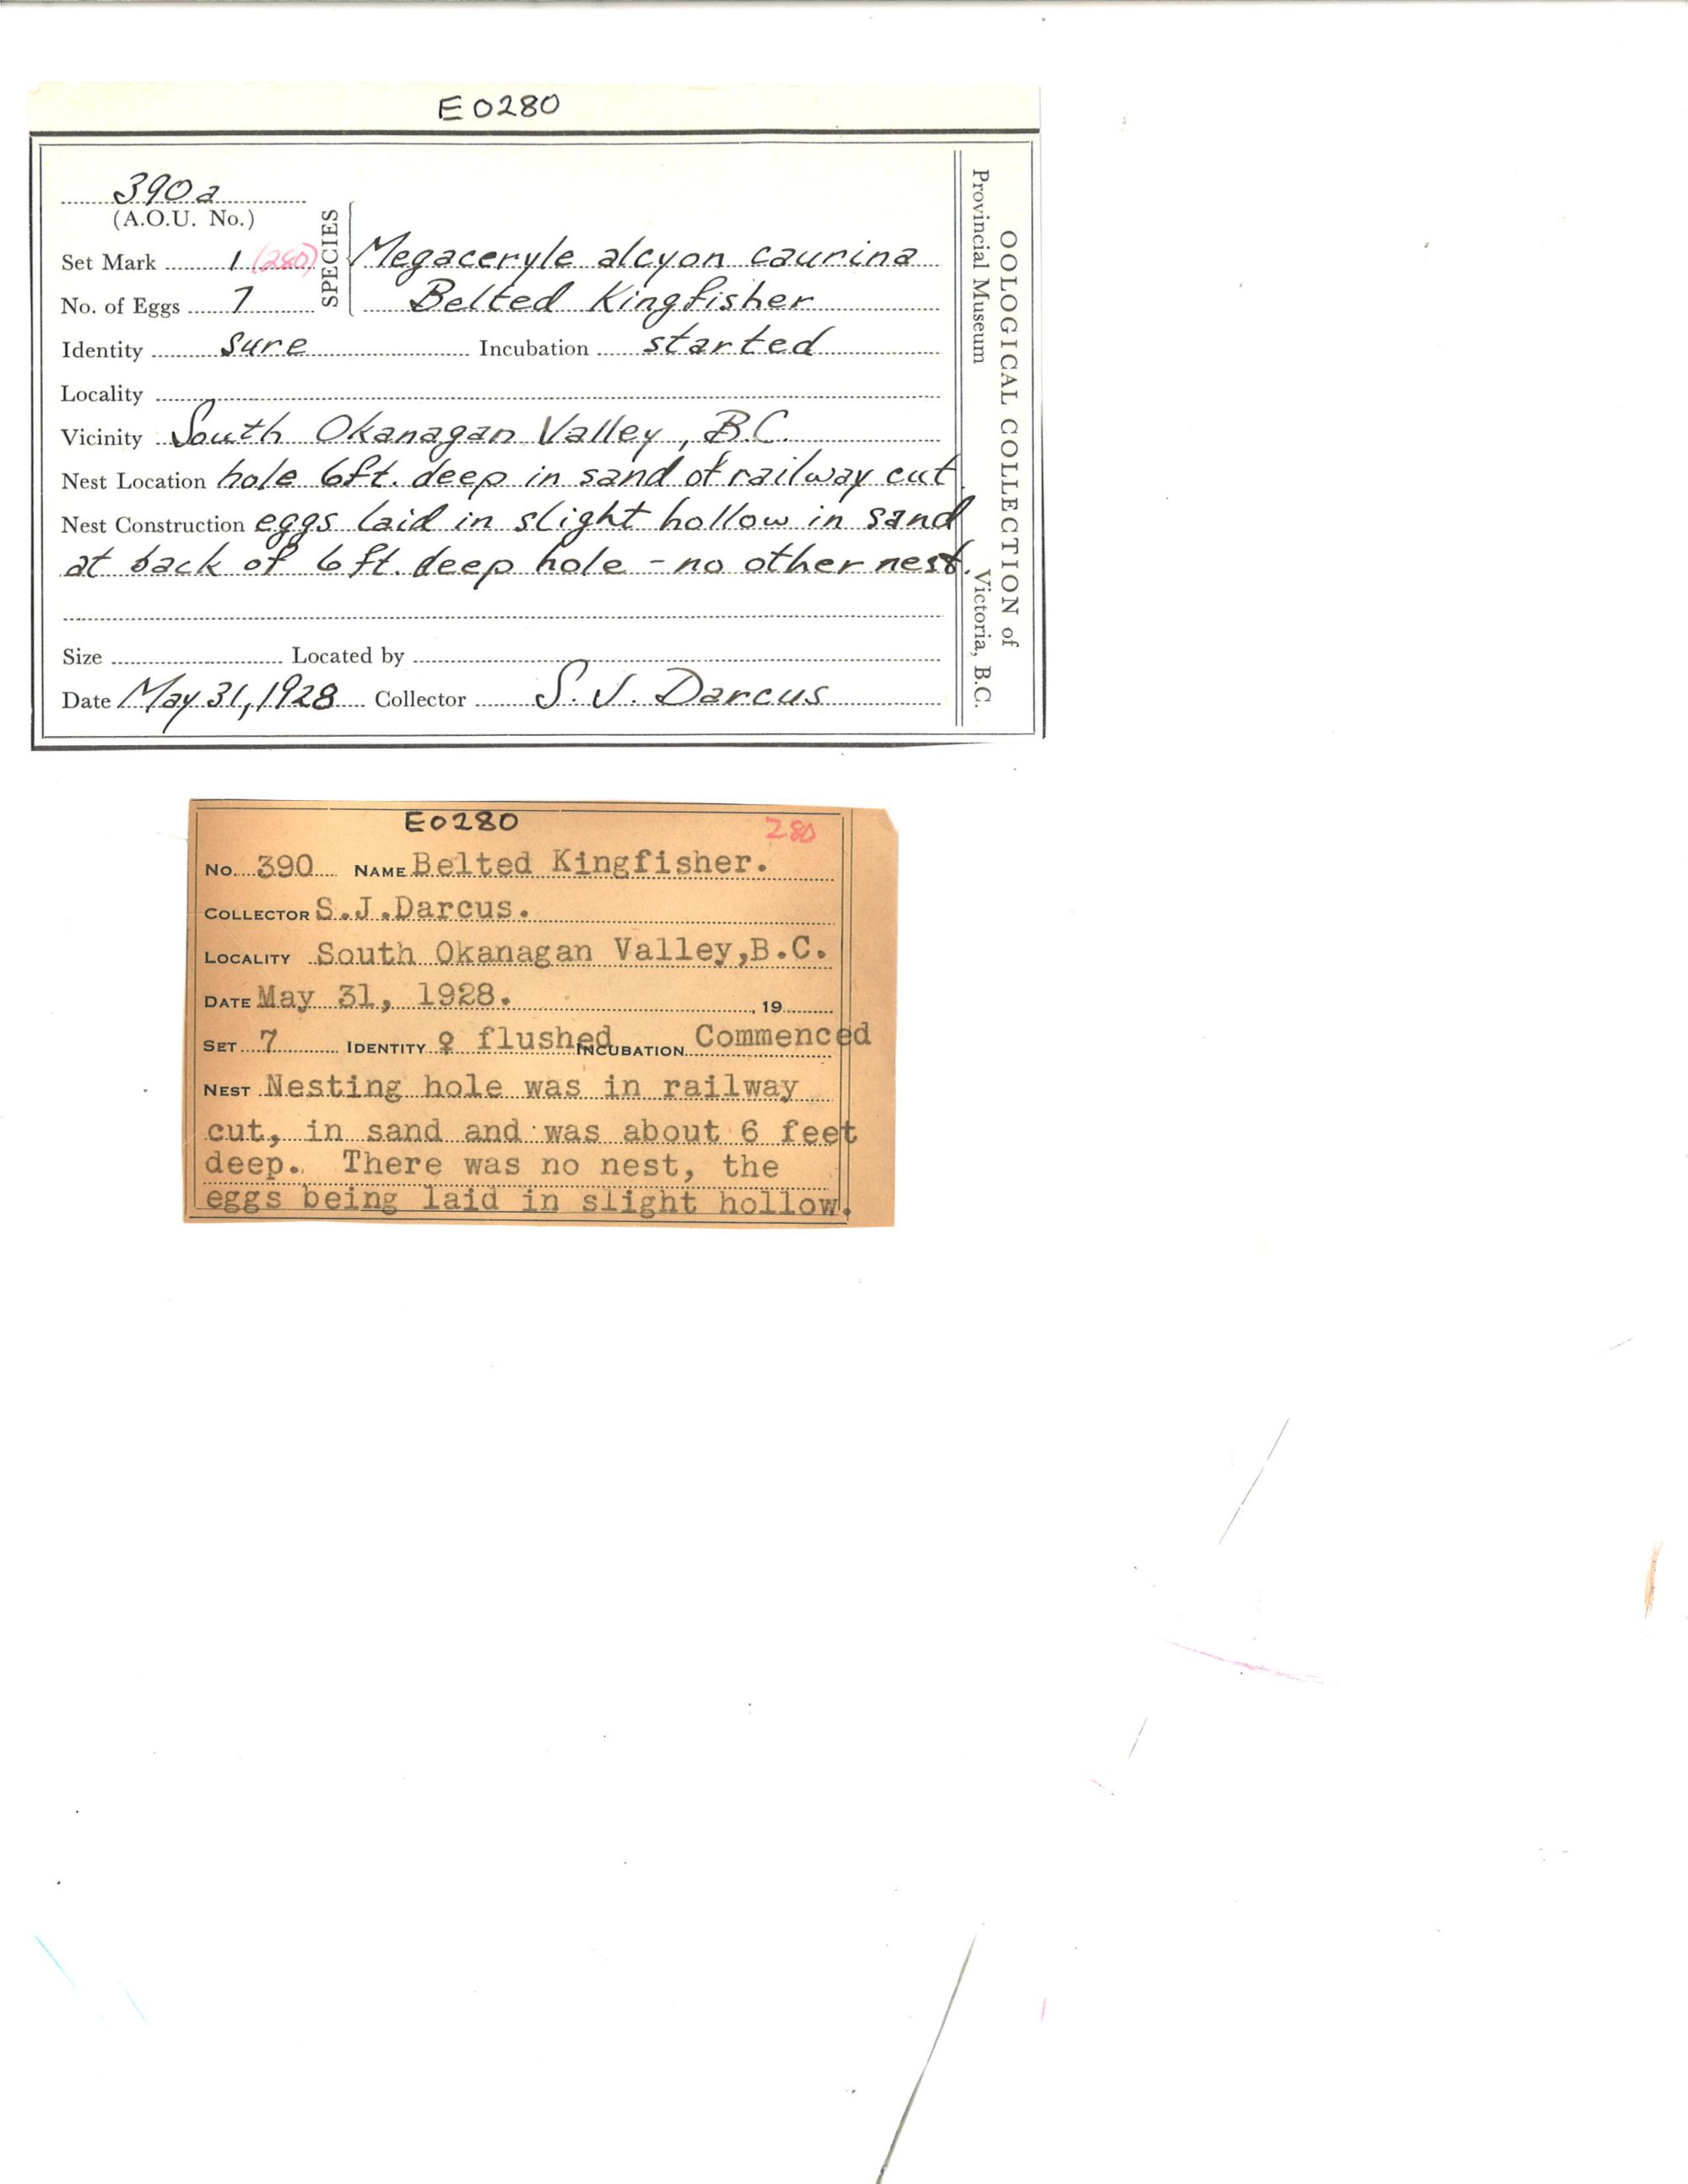 E0280
390a
(A.O.U. No.)
Set Mark 1 (280)
No. of Eggs 7
SPECIES
Megaceryle alcyon caurina
Belted Kingfisher
Identity sure Incubation started
Locality
Vicinity South Okanagan Valley, B.C.
Nest Location hole 6ft. deep in sand of railway cut.
Nest Construction eggs laid in slight hollow in sand
at back of 6ft. deep hole - no other nest.
Size Located by
Date May 31, 1928 Collector S. J. Darcus
OOLOGICAL COLLECTION of
Provincial Museum Victoria, B.C.
E0280 280
No. 390 NAME Belted Kingfisher.
COLLECTOR S.J.Darcus.
LOCALITY South Okanagan Valley,B.C.
DATE May 31, 1928. , 19
SET 7 IDENTITY ♀ flushed INCUBATION Commenced
NEST Nesting hole was in railway
cut, in sand and was about 6 feet
deep. There was no nest, the
eggs being laid in slight hollow.